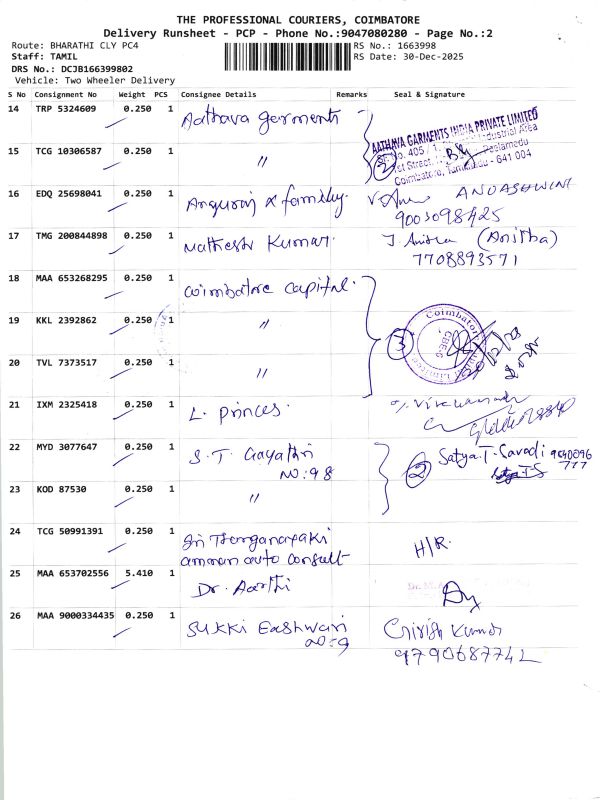 THE PROFESSIONAL COURIERS, COIMBATORE
Delivery Runsheet - PCP - Phone No.:9047080280 - Page No.:2
Route: BHARATHI CLY PC4 RS No.: 1663998
Staff: TAMIL RS Date: 30-Dec-2025
DRS No.: DCJB166399802
Vehicle: Two Wheeler Delivery
S No Consignment No Weight PCS Consignee Details Remarks Seal & Signature
14 TRP 5324609 0.250 1 Aathava garments
AATHAVA GARMENTS INDIA PRIVATE LIMITED
15 TCG 10306587 0.250 1 " 2
Coimbatore, Tamilnadu - 641 004
16 EDQ 25698041 0.250 1 Anguraj & family. ANUASHWINI
9003098425
17 TMG 200844898 0.250 1 Mathesh Kumar. J. Anitha (Anitha)
7708893571
18 MAA 653268295 0.250 1 Coimbatore capital.
19 KKL 2392862 0.250 1 " 3
20 TVL 7373517 0.250 1 "
21 IXM 2325418 0.250 1 L. princes.
22 MYD 3077647 0.250 1 S. T. Gayathri
NO: 98
2 Satya.T. Savadi
23 KOD 87530 0.250 1 "
24 TCG 50991391 0.250 1 Sri Thenganayaki
amman auto consult
H/R.
25 MAA 653702556 5.410 1 Dr. Aarthi
26 MAA 9000334435 0.250 1 Sukki Eashwari
no 9
Girish Kumar
9790687742